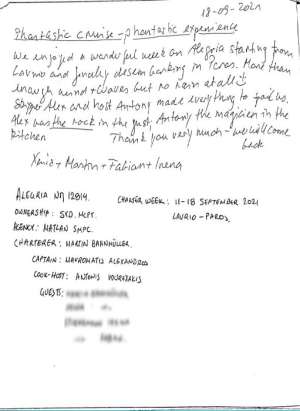 18-09-2021
Phantastic cruise - phantastic experience
We enjoyed a wonderful week on Alegria starting from
Lavrio and finally disembarking in Paros. More than
enough wind + waves but no rain at all
Skipper Alex and host Antony made everything to
Alex was the rock in the gust, Antony the magician in the
kitchen Thank you very much - we will come
back
+ Martin + Fabian + Irena
ALEGRIA NΠ 12814. CHARTER WEEK: 11-18 SEPTEMBER 2021
OWNERSHIP: SYD. MCPY. LAVRIO-PAROS
AGENCY: MATLAN SMPC.
CHARTERER: MARTIN BAHNMÜLLER
CAPTAIN: MAVROMATIS ALEXANDROS
COOK-HOST: ANTONIS
GUESTS: